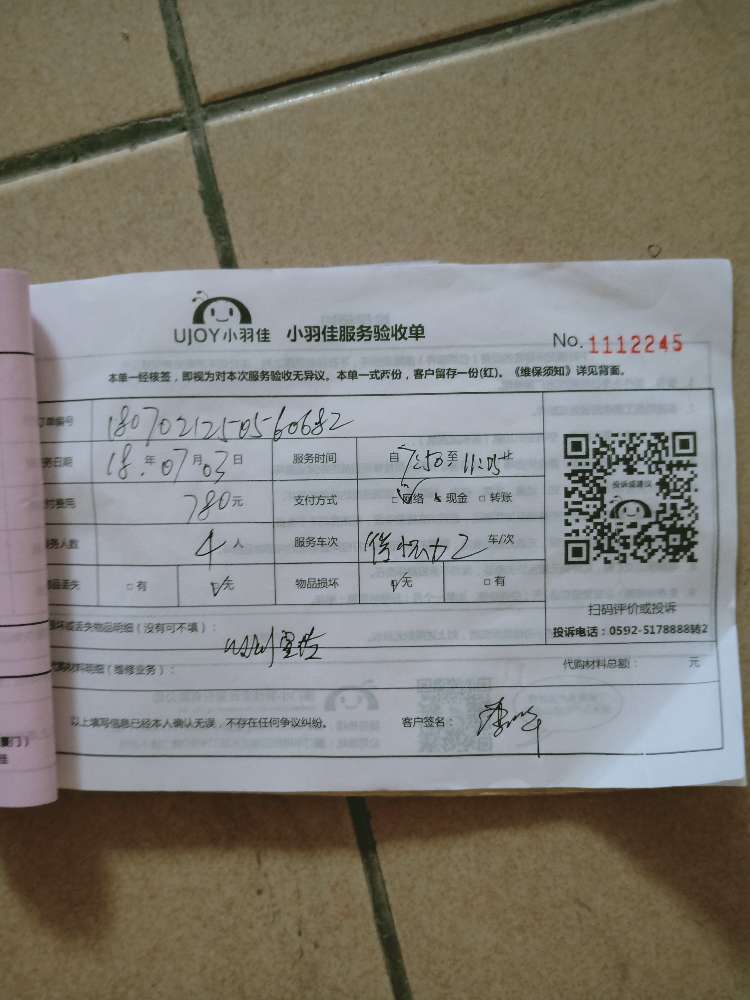 UJOY小羽佳 小羽佳服务验收单
No. 1112245
本单一经核签，即视为对本次服务验收无异议。本单一式两份，客户留存一份(红)。《维保须知》详见背面。
订单编号 180702125056068 2
务日期 18.年07月03日 服务时间 自7:50至11:05止
付费用 780元 支付方式 □网络 □现金 □转账
务人数 4人 服务车次 2车/次
品丢失 □有 □无 物品损坏 □无 □有
投诉或建议
扫码评价或投诉
坏或丢失物品明细（没有可不填）：
投诉电话：0592-5178888转2
代购材料明细（维修业务）：
代购材料总额： 元
以上填写信息已经本人确认无误，不存在任何争议纠纷。 客户签名：
厦门）